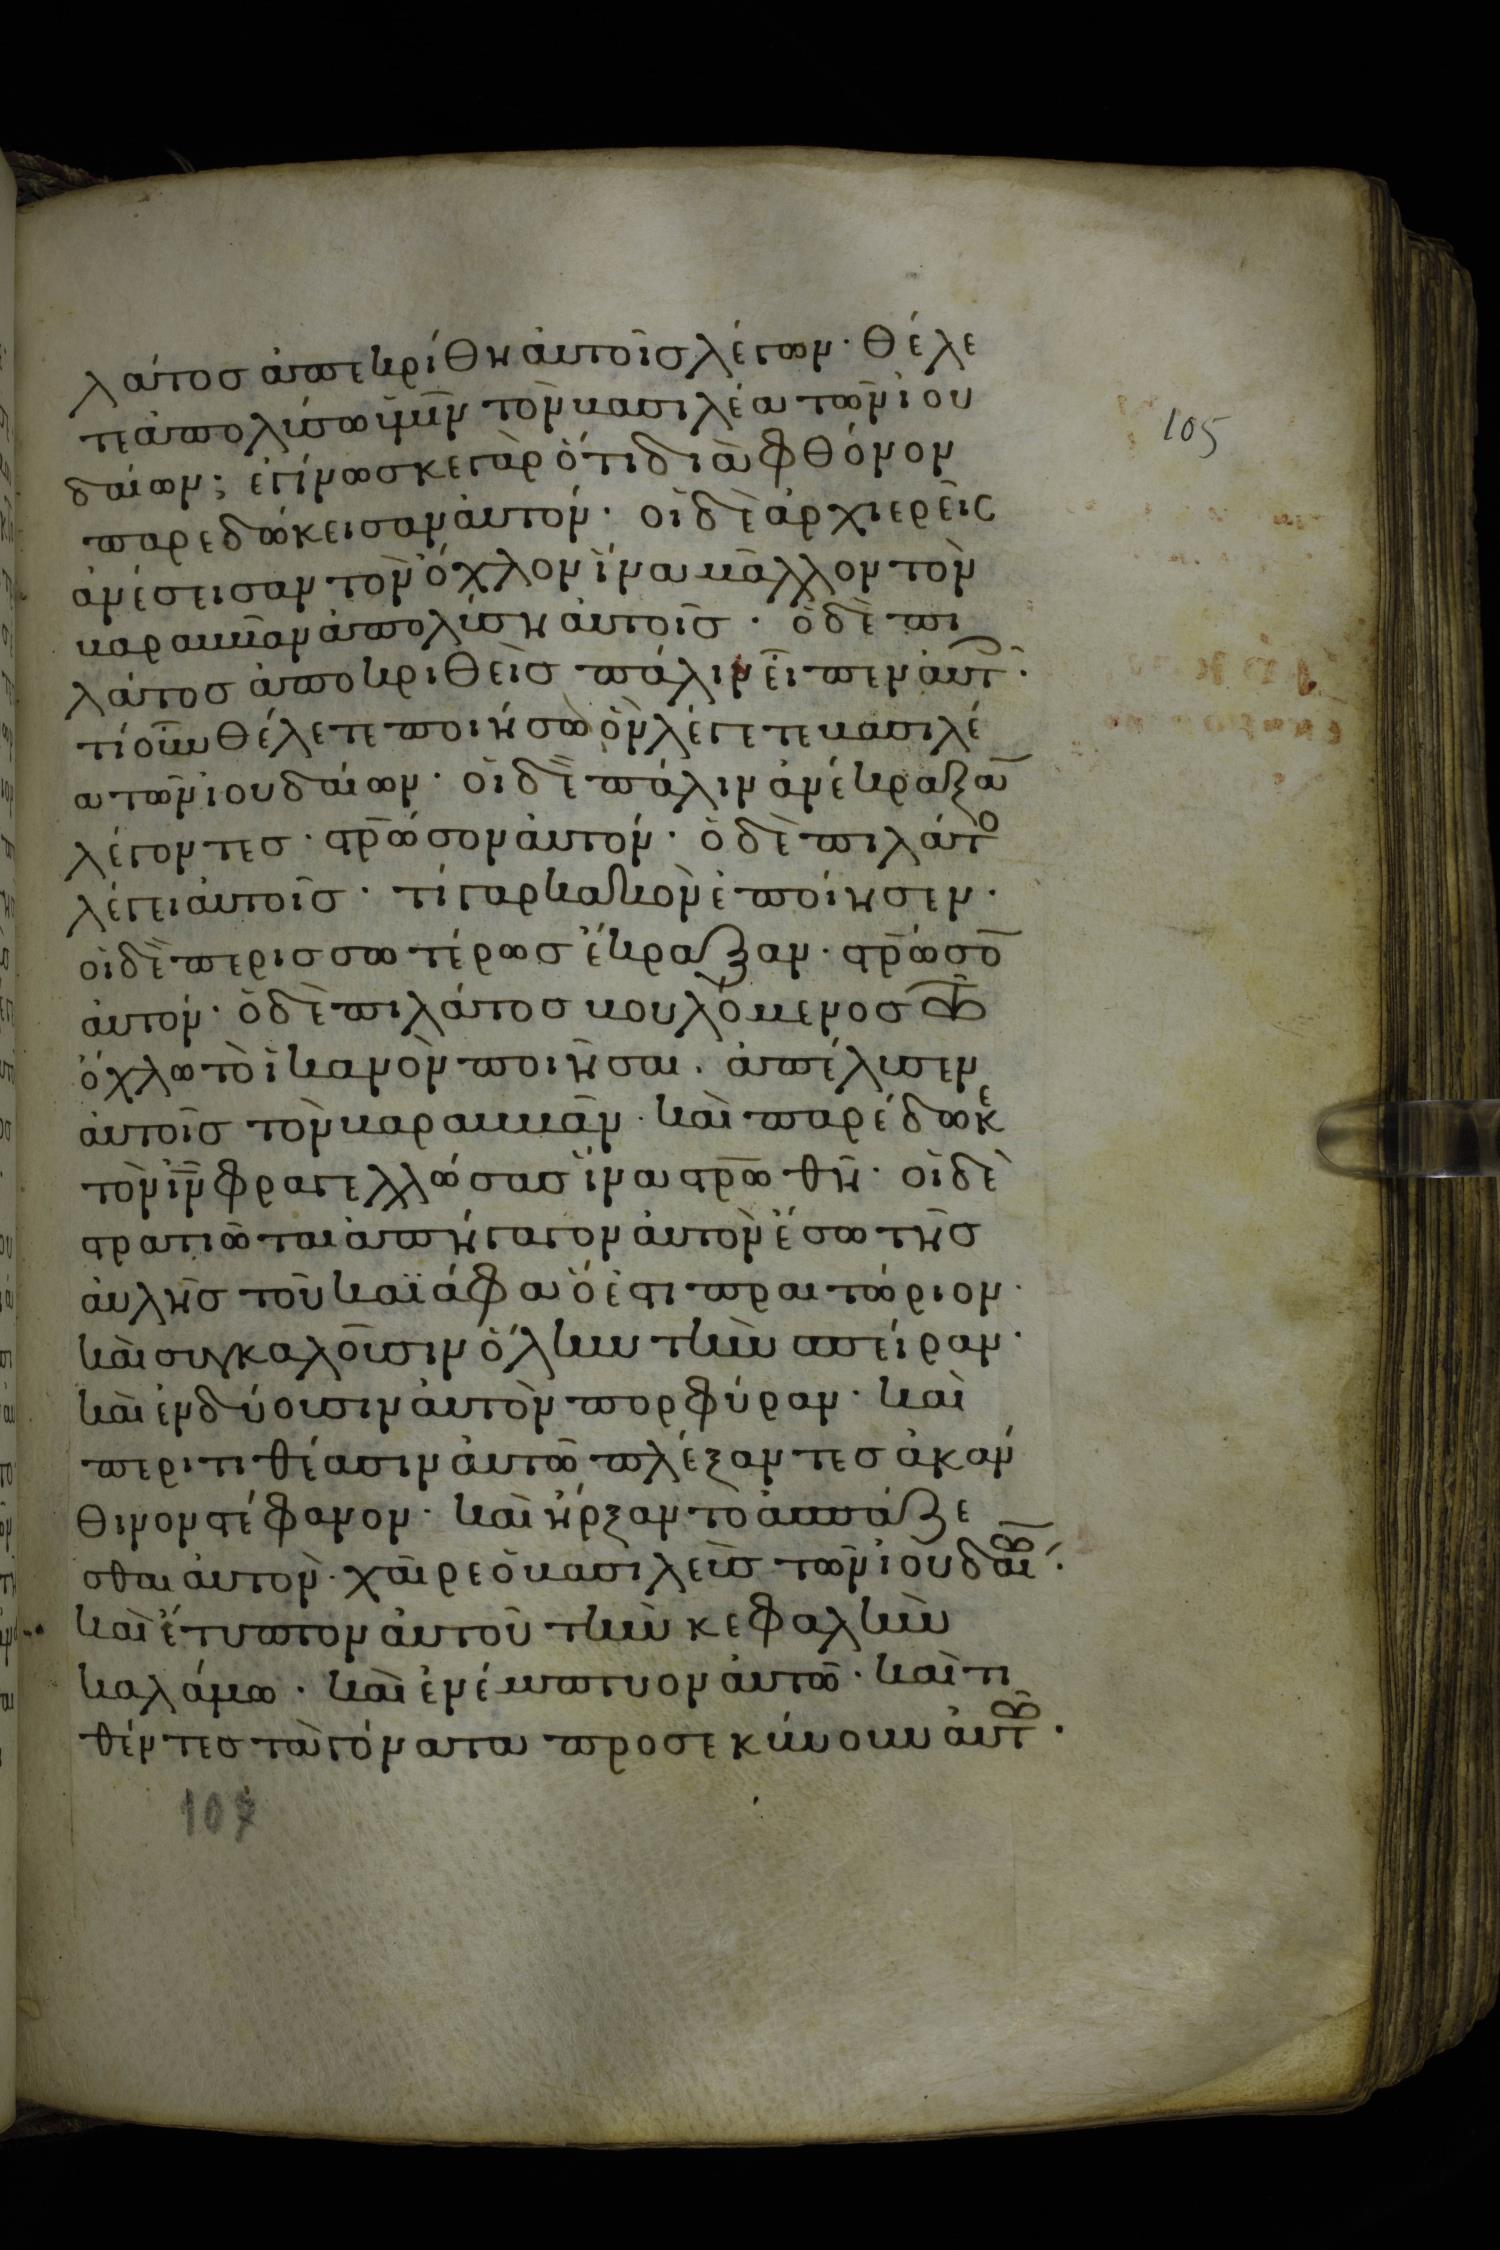 λάτος ἀπεκρίθη ἀυτοῖς λέγων· θέλε
τε ἀπολύσω ὑμῖν τὸν βασιλέα τῶν ἰου
δαίων; ἐγίνωσκε γὰρ ὅτι διὰ φθόνον
παρεδώκεισαν ἀυτόν· οἱ δὲ ἀρχιερεῖς
ἀνέσεισαν τὸν ὄχλον ἵνα μᾶλλον τὸν
βαραββᾶν ἀπολύση ἀυτοῖς· ὁ δὲ πι
λάτος ἀποκριθεὶς πάλιν εἶπεν ἀυτ̑·
τί οὖν θέλετε ποιήσω ὃν λέγετε βασιλέ
α τῶν ἰουδαίων· οἱ δὲ πάλιν ἀνέκραξα̅
λέγοντες· στ̅ρωσον ἀυτόν· ὁ δὲ πιλάτο
λέγει ἀυτοῖς· τί γαρ κακὸν ἐποίησεν·
οἱ δὲ περισσωτέρως ἔκραξαν· στ̅ρωσο̅
ἀυτόν· ὁ δὲ πιλάτος βουλόμενος τῶ
ὄχλω τὸ ἱκανὸν ποιῆσαι· ἀπέλυσεν
ἀυτοῖς τὸν βαραββᾶν· καὶ παρέδωκε
τὸν ι̅ν̅ φραγελλώσας ἵνα στ̅ρωθῆ· οἱ δὲ
στρατιῶται ἀπήγαγον ἀυτὸν ἔσω τῆς
ἀυλῆς τοῦ καϊάφα ὅ ἐστι πραιτώριον·
καὶ συγκαλοῦσιν ὅλην τὴν σπείραν·
καὶ ἐνδύουσιν ἀυτὸν πορφύραν· καὶ
περιτιθέασιν ἀυτῶ πλέξαντες ἀκάν
θινον στέφανον· καὶ ἤρξαντο ἀσπάζε
σθαι ἀυτὸν· χαῖρε ὁ βασιλεὺς τῶν ἰουδαί·
καὶ ἔτυπτον ἀυτοῦ τὴν κεφαλὴν
καλάμω· καὶ ἐνέπτυον ἀυτῶ· καὶ τι
θέντες τὰ γόνατα προσεκύνουν ἀυτῶ·
105
107